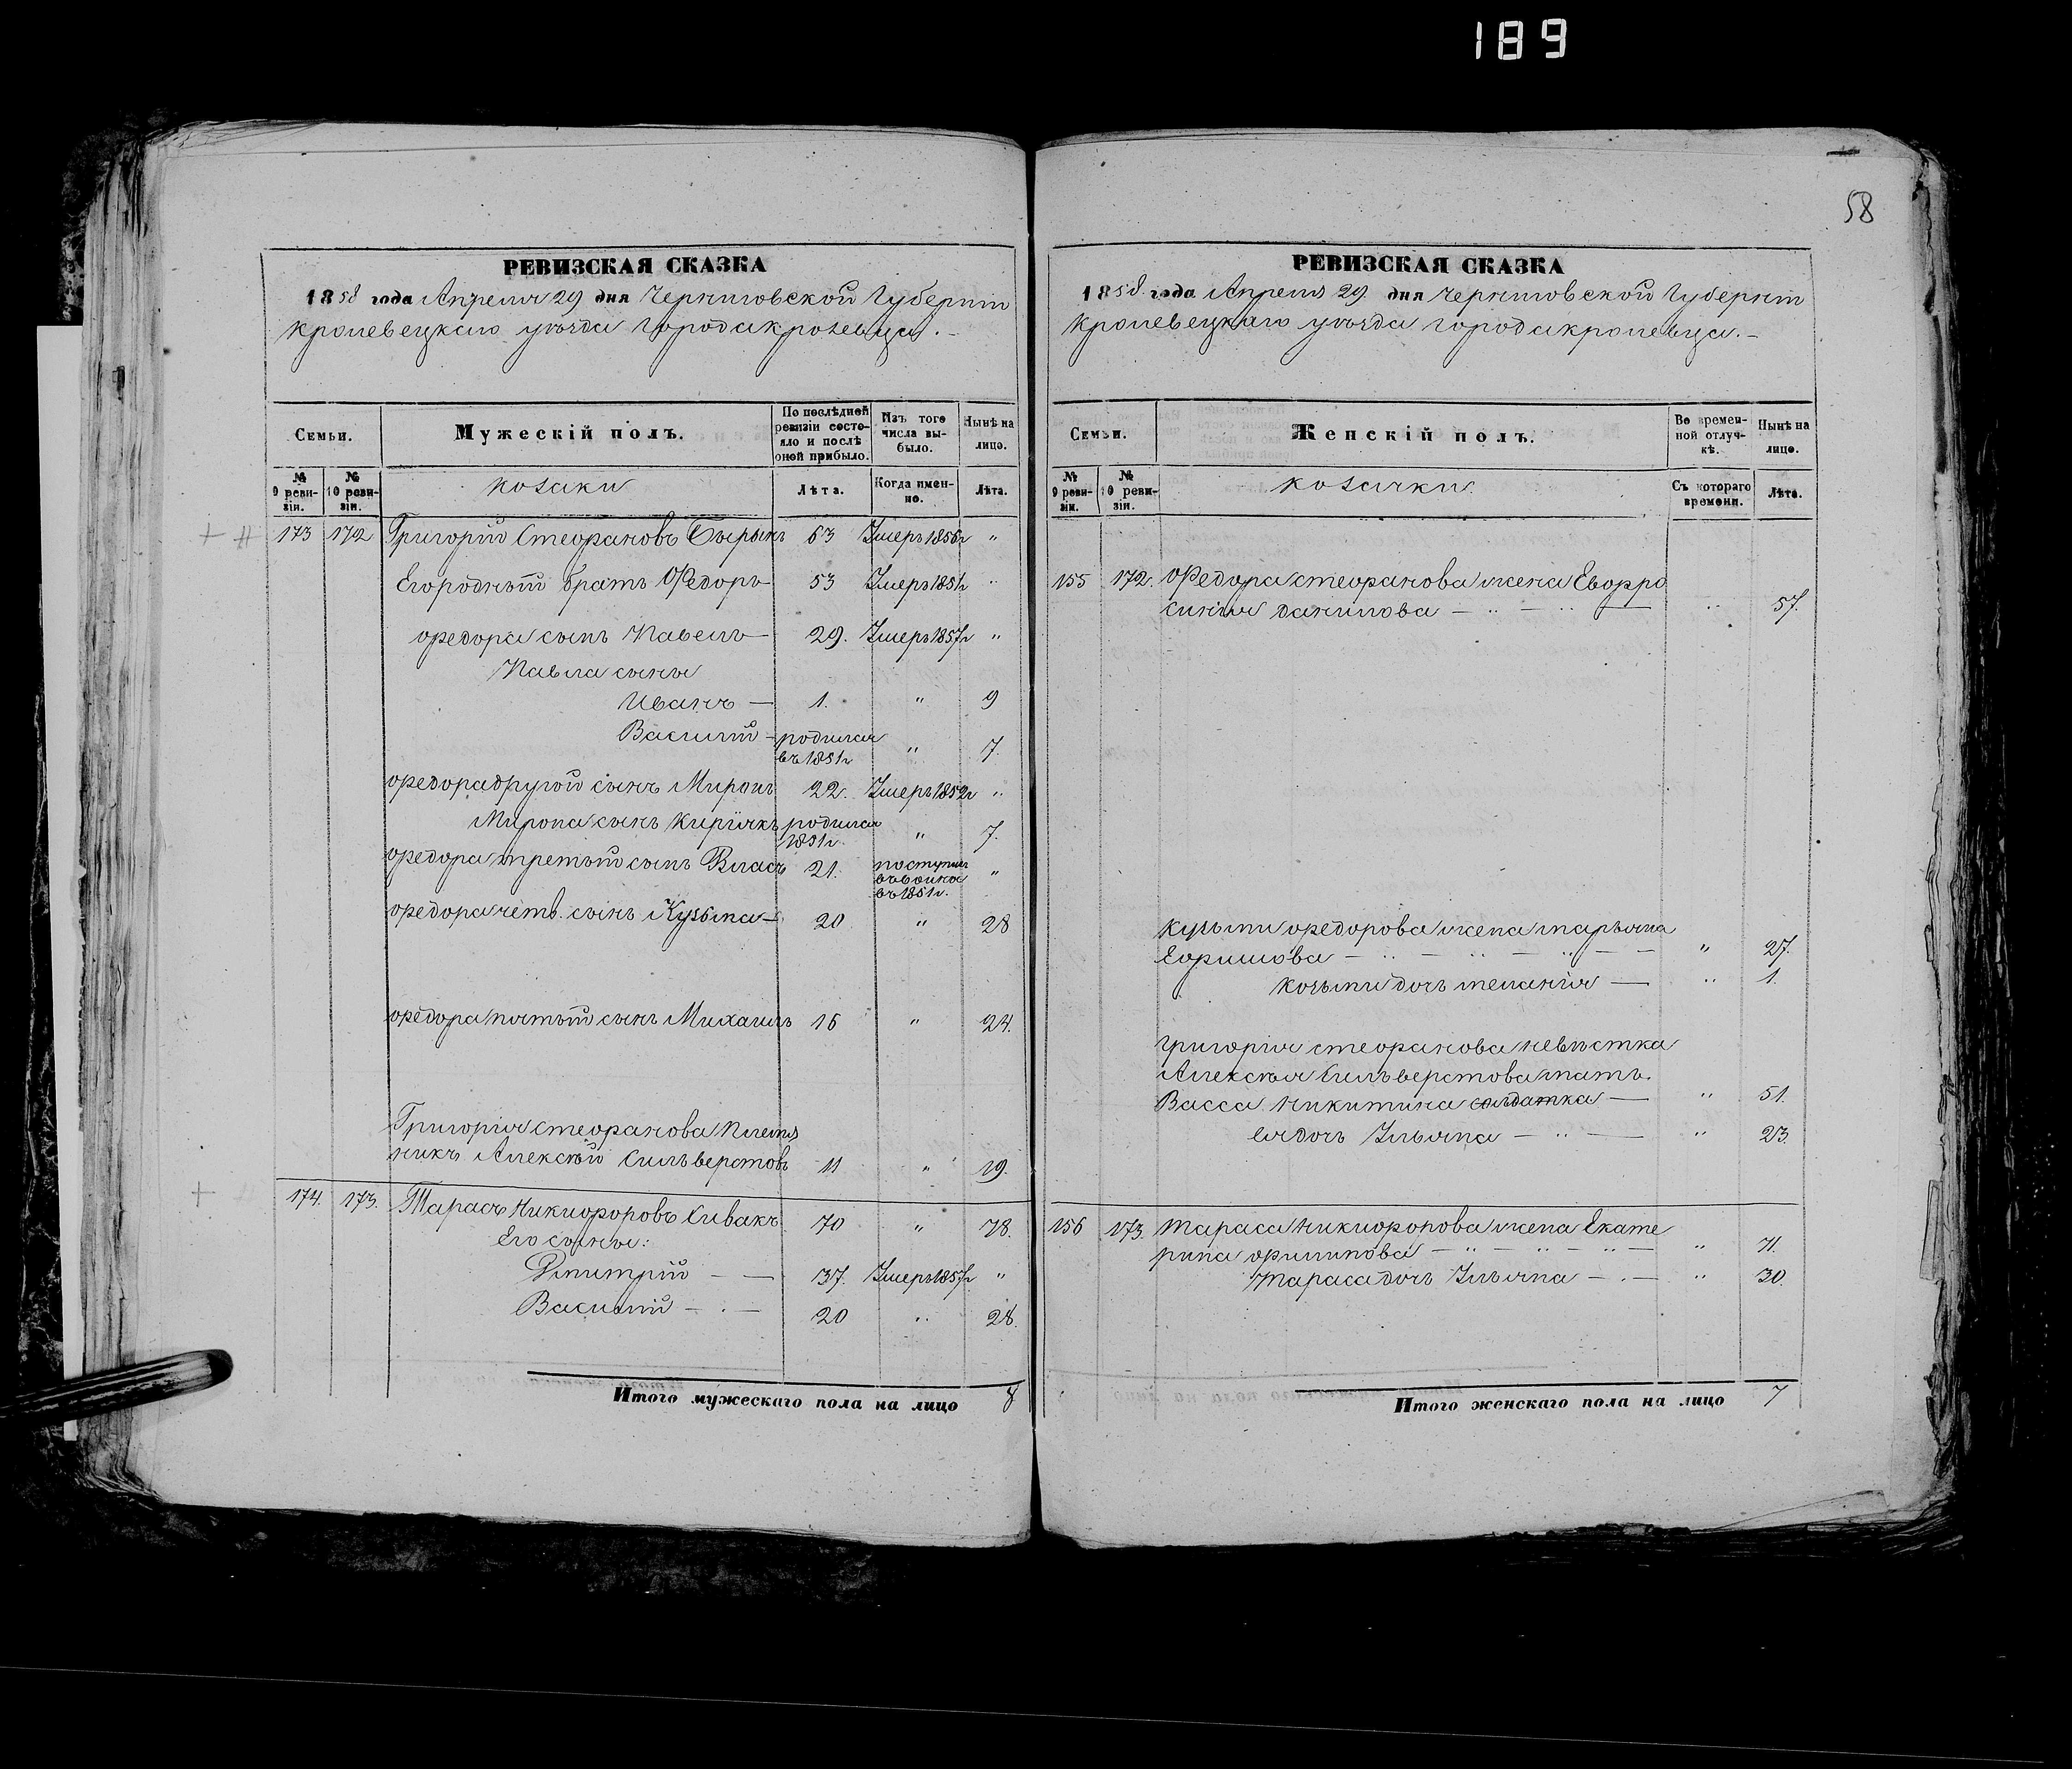 189
58
РЕВИЗСКАЯ СКАЗКА
1858 года Апреля 29 дня Черниговской Губерніи
Кролевецкаго уѣзда города Кролевца.
Семьи.
Мужескій полъ.
По послѣдней ревизіи состояло и послѣ оной прибыло.
Изъ того числа выбыло.
Нынѣ на лицо.
№ 9 ревизіи.
№ 10 ревизіи.
козаки
Лѣта.
Когда именно.
Лѣта.
173 172 Григорій Стефановъ 63 Умеръ 1856г "
Его родный братъ Федоръ 53 Умеръ 1851г "
Федора сынъ Павелъ 29. Умеръ 1857г "
Павла сыны
Иванъ — 1. " 9
Василій — родился въ 1851г " 7.
Федора другой сынъ Миронъ 22. Умеръ 1852г "
Мирона сынъ Кирикъ родился 1851г " 7.
Федора третьій сынъ Власъ 21. поступилъ въ войска въ 1851г. "
Федора четв. сынъ Кузьма — 20 " 28
Федора пятый сынъ Михаилъ 16 " 24.
Григорія Стефанова племян
никъ Алексѣй Сильверстовъ 11 " 19.
174. 173. Тарасъ Никифоровъ Сивакъ 70 " 78.
Его сыны:
Дмитрій — — 37. Умеръ 1857г "
Василій — . — 20 " 28.
Итого мужескаго пола на лицо 8
РЕВИЗСКАЯ СКАЗКА
1858. года Апреля 29. дня Черниговской Губерніи
Кролевецкаго уѣзда города Кролевца. —
Семьи.
Женскій полъ.
Во временной отлучкѣ.
Нынѣ на лицо.
№ 9 ревизіи.
№ 10 ревизіи.
козачки
Съ котораго времени.
Лѣта.
155 172. Федора Стефанова жена Евфро
синія Данилова — " — " — " 57.
Кузьми Федорова жена Марьяна
Ефимова — " — " — " — " 27.
Козьми дочь Меланія — " 1.
Григорія Стефанова невѣстка
Алексѣя Сильверстова мать
Васса Никитина солдатка — " 51.
ея дочь Ульяна — " — " 23.
156 173. Тараса Никифорова жена Екате
рина Филипова — " — " — " — " 71.
Тараса дочь Ульяна — . — " 30.
Итого женскаго пола на лицо 7